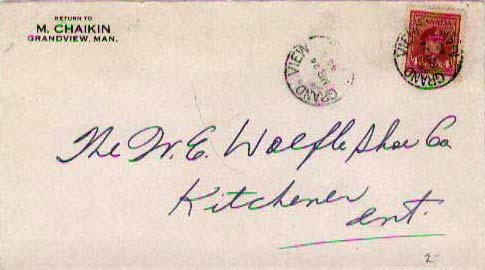 RETURN TO
M. CHAIKIN
GRANDVIEW, MAN.
CANADA
GRAND VIEW
GRAND VIEW
The W. E. Woelfle Shoe Co
Kitchener
Ont.
2-